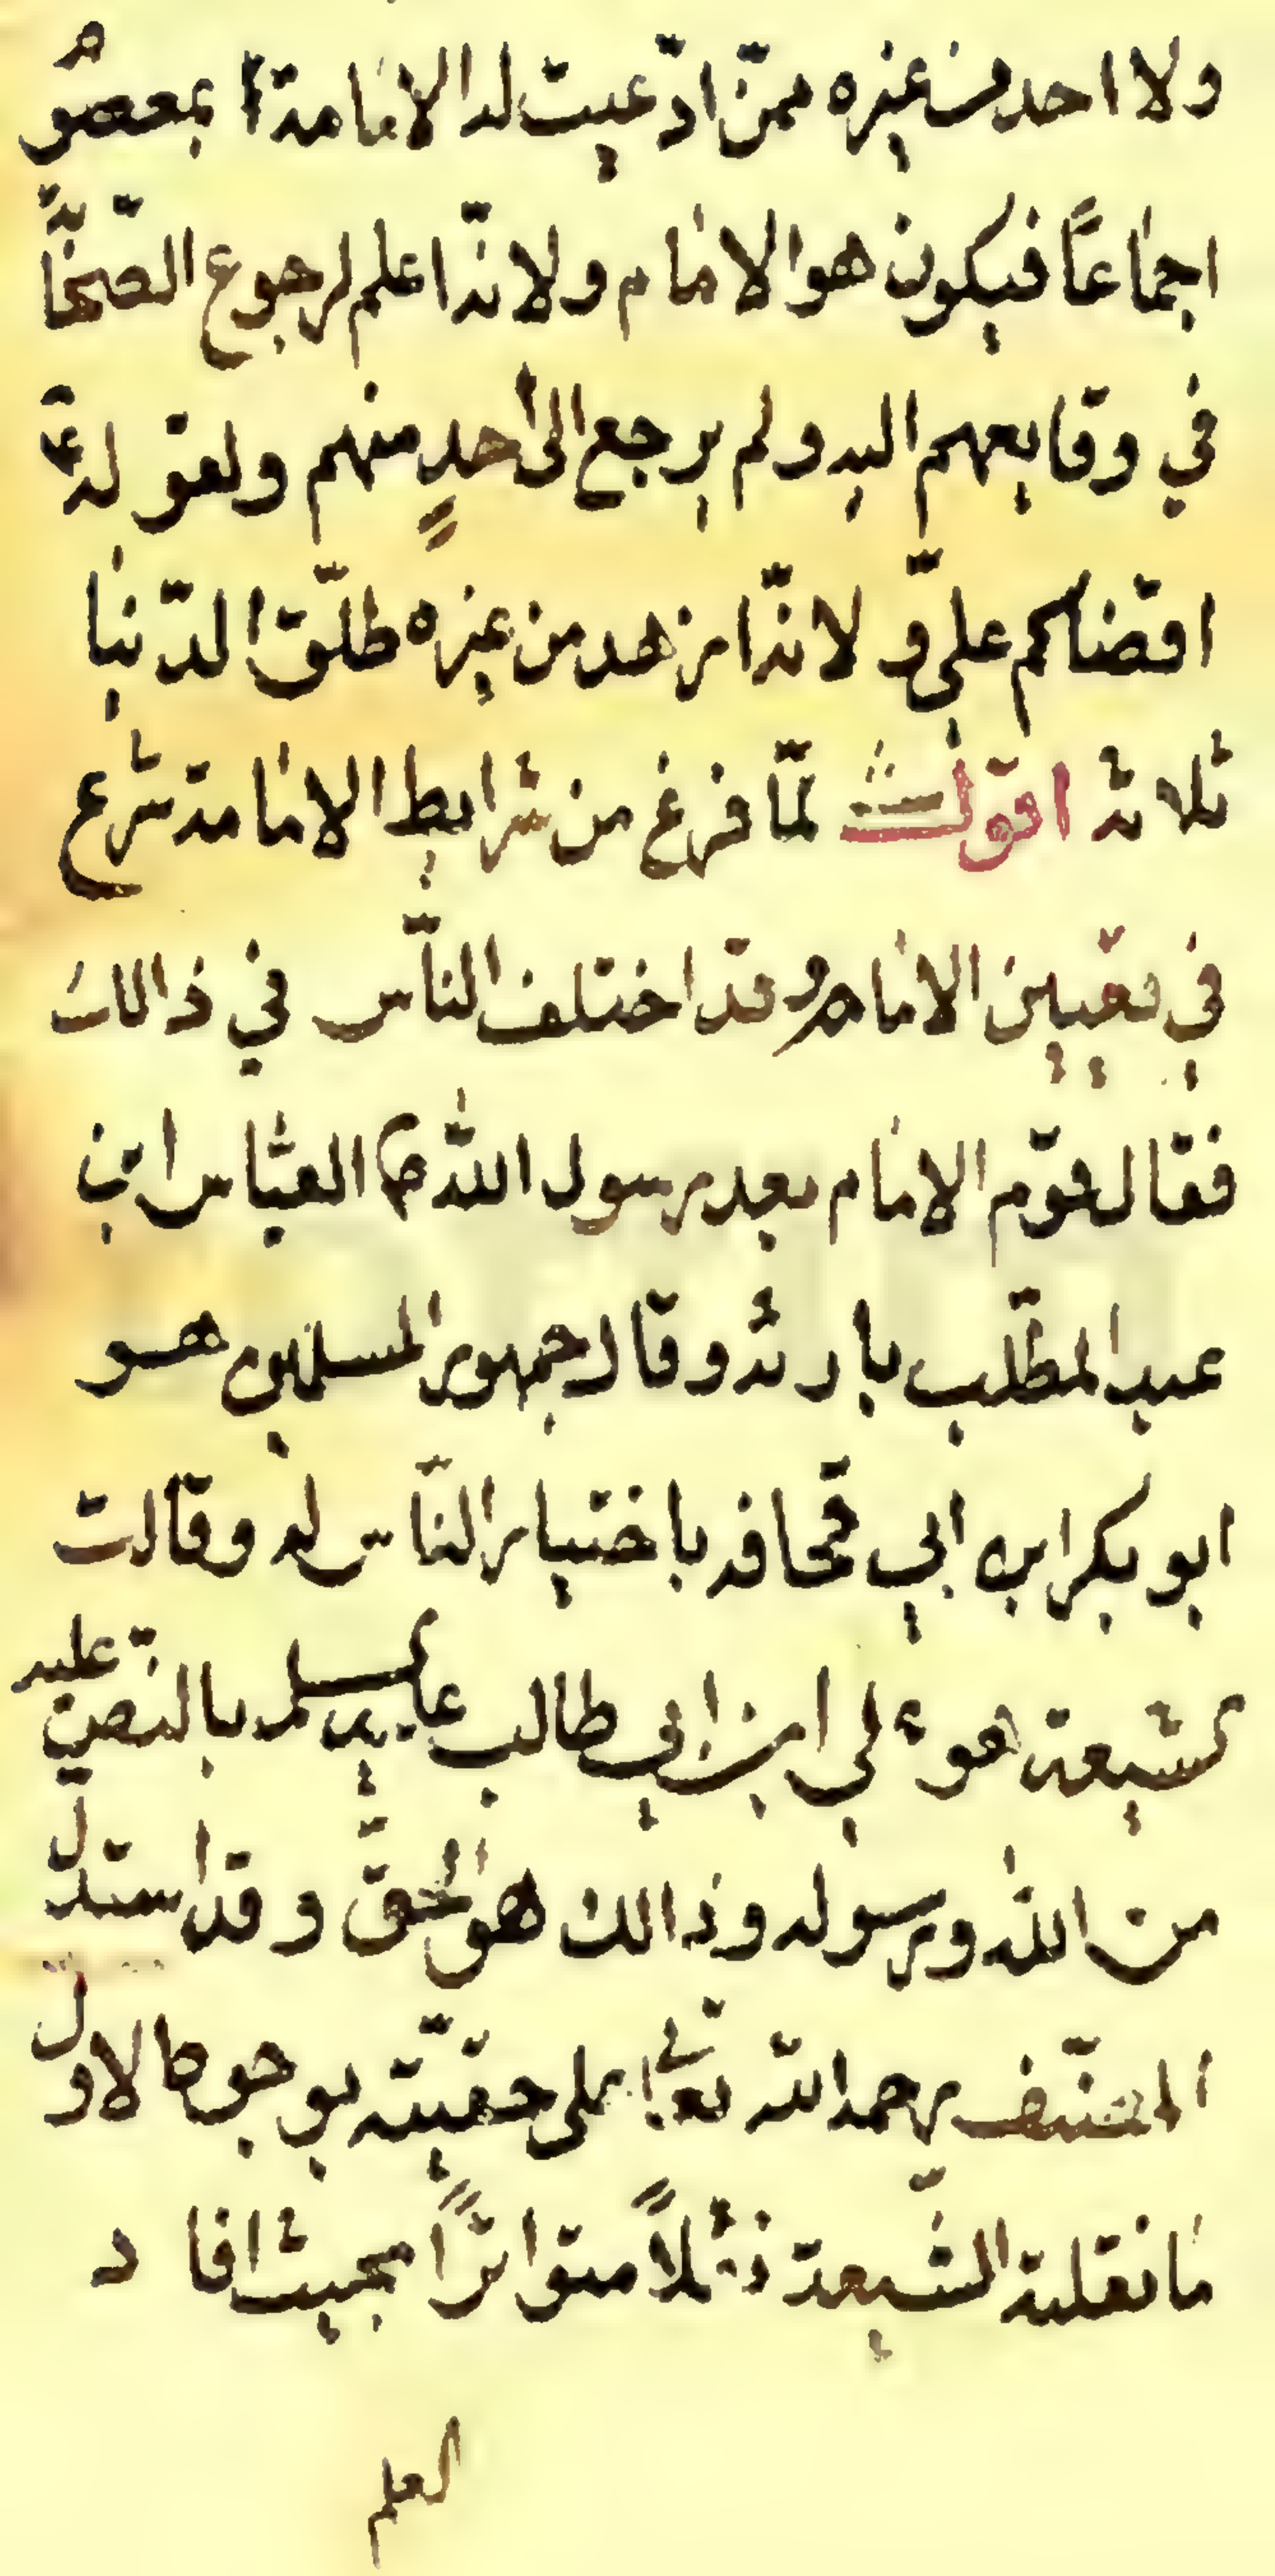 ولا احد من غيره ممّن ادّعيت له الامامة بمعصوم
اجماعاً فيكون هو الامام ولانّه اعلم لرجوع الصّحابة
في وقايعهم اليه ولم يرجع الى احدٍ منهم ولقوله
اقضاكم علي ولانّه ازهد من غيره طلّق الدّنيا
ثلاثه اقول لمّا فرغ من شرايط الامامة شرع
في تعيين الامام وقد اختلف النّاس في ذالك
فقال قوم الامام بعد رسول الله ص العبّاس ابن
عبد المطّلب بارثه وقال جمهور المسلمين هو
ابو بكر ابن ابي قحافه باختيار النّاس له وقالت
لشيعة هو علي ابن ابي طالب عليه لسلم بالنصّ عليه
من الله ورسوله وذالك هو الحقّ وقد استدلّ
المصنّف رحمه الله تعالى على حقيّته بوجوه الاول
ما نقلته الشّيعة نقلاً متواتراً بحيث افاد
العلم